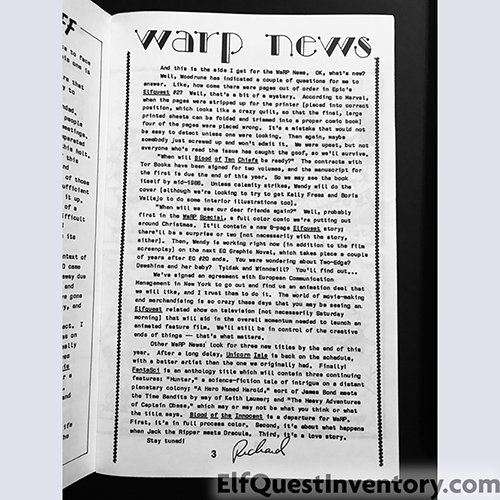 warp news
And this is the side I get for the WaRP News. OK, what's new?
Well, Woodrune has indicated a couple of questions for me to
answer. Like, how come there were pages out of order in Epic's
Elfquest #2? Well, that's a bit of a mystery. According to Marvel,
when the pages were stripped up for the printer (placed into correct
position, which looks like a crazy quilt, so that the final, large
printed sheets can be folded and trimmed into a proper comic book)
four of the pages were placed wrong. It's a mistake that would not
be easy to detect unless one were looking. Then again, maybe
somebody just screwed up and won't admit it. We were upset, but not
everyone who's read the issue has caught the goof, so we'll survive.
"When will Blood of Ten Chiefs be ready?" The contracts with
Tor Books have been signed for two volumes, and the manuscript for
the first is due the end of this year. So we may see the book
itself by mid-1986. Unless calamity strikes, Wendy will do the
cover (although we're looking to try to get Kelly Freas and Boris
Vallejo to do some interior illustrations too).
"When will we see our dear friends again?" Well, probably
first in the WaRP Special, a full color comic we're putting out
around Christmas. It'll contain a new 8-page Elfquest story;
there'll be a surprise or two (not necessarily with the story,
either). Then, Wendy is working right now (in addition to the film
screenplay) on the next EQ Graphic Novel, which takes place a couple
of years after EQ #20 ends. You were wondering about Two-Edge?
Dewshine and her baby? Tyldak and Winnowill? You'll find out...
We've signed an agreement with European Communication
Management in New York to go out and find us an animation deal that
we will like, and I trust them to do it. The world of movie-making
and merchandising is so crazy these days that you may be seeing an
Elfquest related show on television (not necessarily Saturday
morning) that will aid in the overall momentum needed to launch an
animated feature film. We'll still be in control of the creative
ends of things -- that's what matters.
Other WaRP News: look for three new titles by the end of this
year. After a long delay, Unicorn Isle is back on the schedule,
with a better artist than the one we originally had. Finally!
FantaSci is an anthology title which will contain three continuing
features: "Hunter," a science-fiction tale of intrigue on a distant
planetary colony; "A Hero Named Harold," sort of James Bond meets
the Time Bandits by way of Keith Laumer; and "The Heavy Adventures
of Captain Obese," which may or may not be what you think or what
the title says. Blood of the Innocent is a departure for WaRP.
First, it's in full process color. Second, it's about what happens
when Jack the Ripper meets Dracula. Third, it's a love story.
Stay tuned!
Richard
3
ElfQuestInventory.com